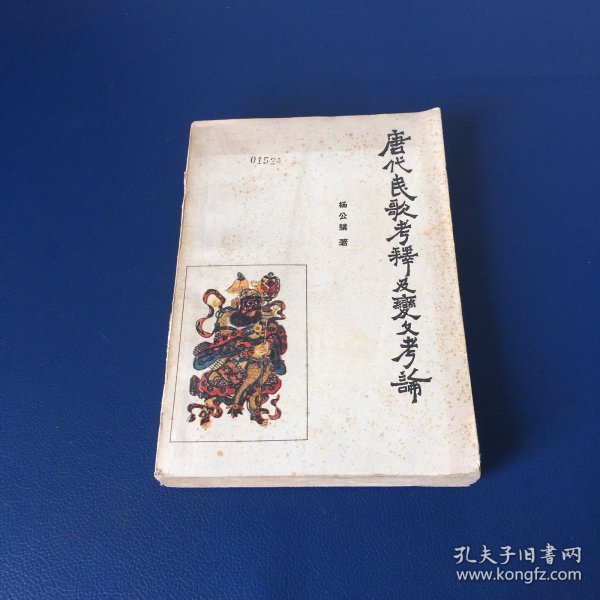 唐代民歌考釋及變文考論
杨公骥 著
01524
孔夫子旧书网
www.kongfz.com